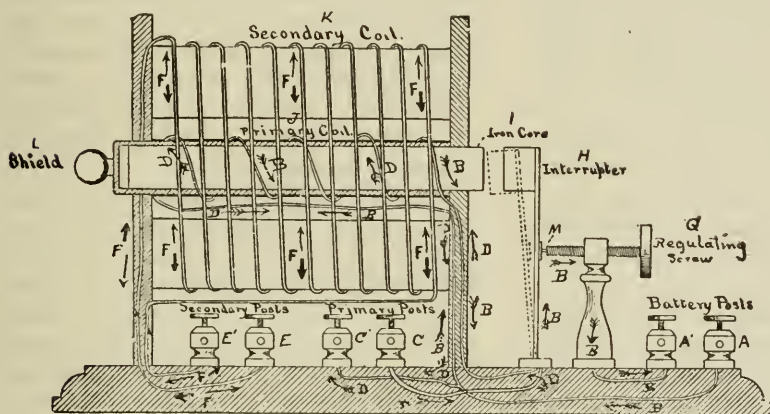 K
Secondary Coil.
F F F
J
Primary Coil.
L
Shield
I
Iron Core
H
Interrupter
D B D B
D B
F F F D
M
Q
Regulating
Screw
B
B
B
Secondary Posts
Primary Posts
Battery Posts
E' E C' C
B
B
A' A
F
F
D
D
D
B
B